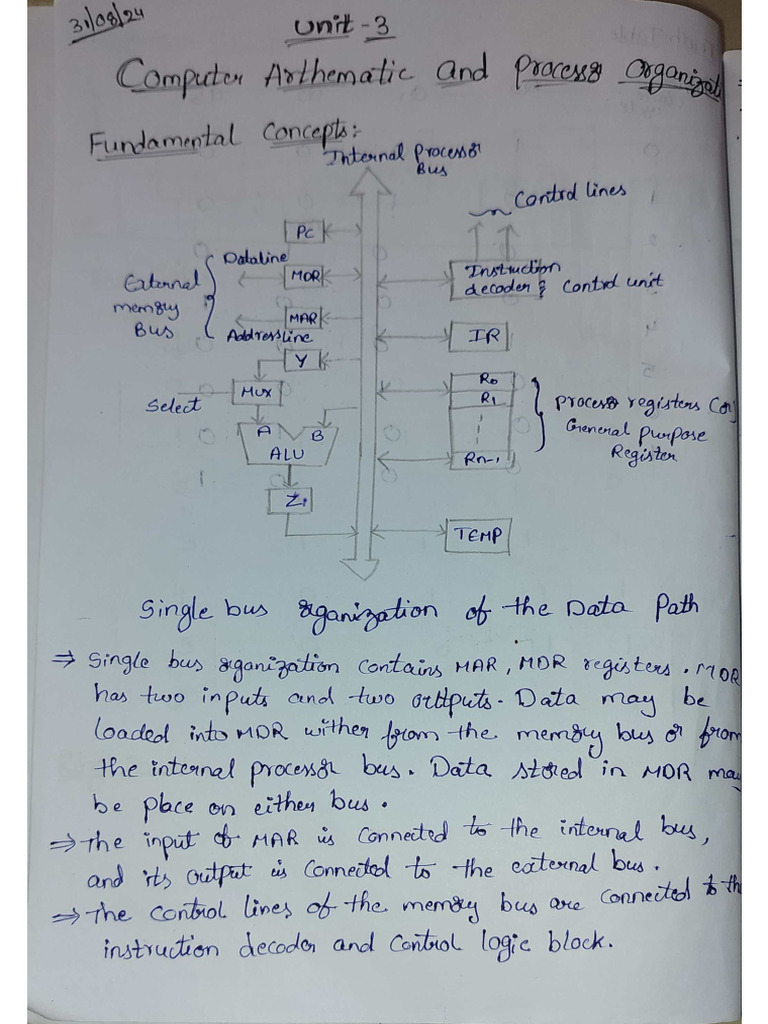 31/08/24
Unit-3
Computer Arthematic and Processor Organizat
Fundamental Concepts:-
Internal Processor
Bus
Control lines
PC
Dataline
MDR
External
memory
Bus
MAR
Addressline
Instruction
decoder & Control unit
IR
Y
Mux
Select
R0
R1
Rn-1
Processor registers (or)
General purpose
Register
A B
ALU
Z
TEMP
Single bus organization of the Data Path
⇒ Single bus organization contains MAR, MDR registers. MDR
has two inputs and two outtputs. Data may be
loaded into MDR wither from the memory bus or from
the internal processor bus. Data stored in MDR may
be place on either bus.
⇒ the input of MAR is connected to the internal bus,
and its output is connected to the external bus.
⇒ the control lines of the memory bus are connected to the
instruction decoder and control logic block.